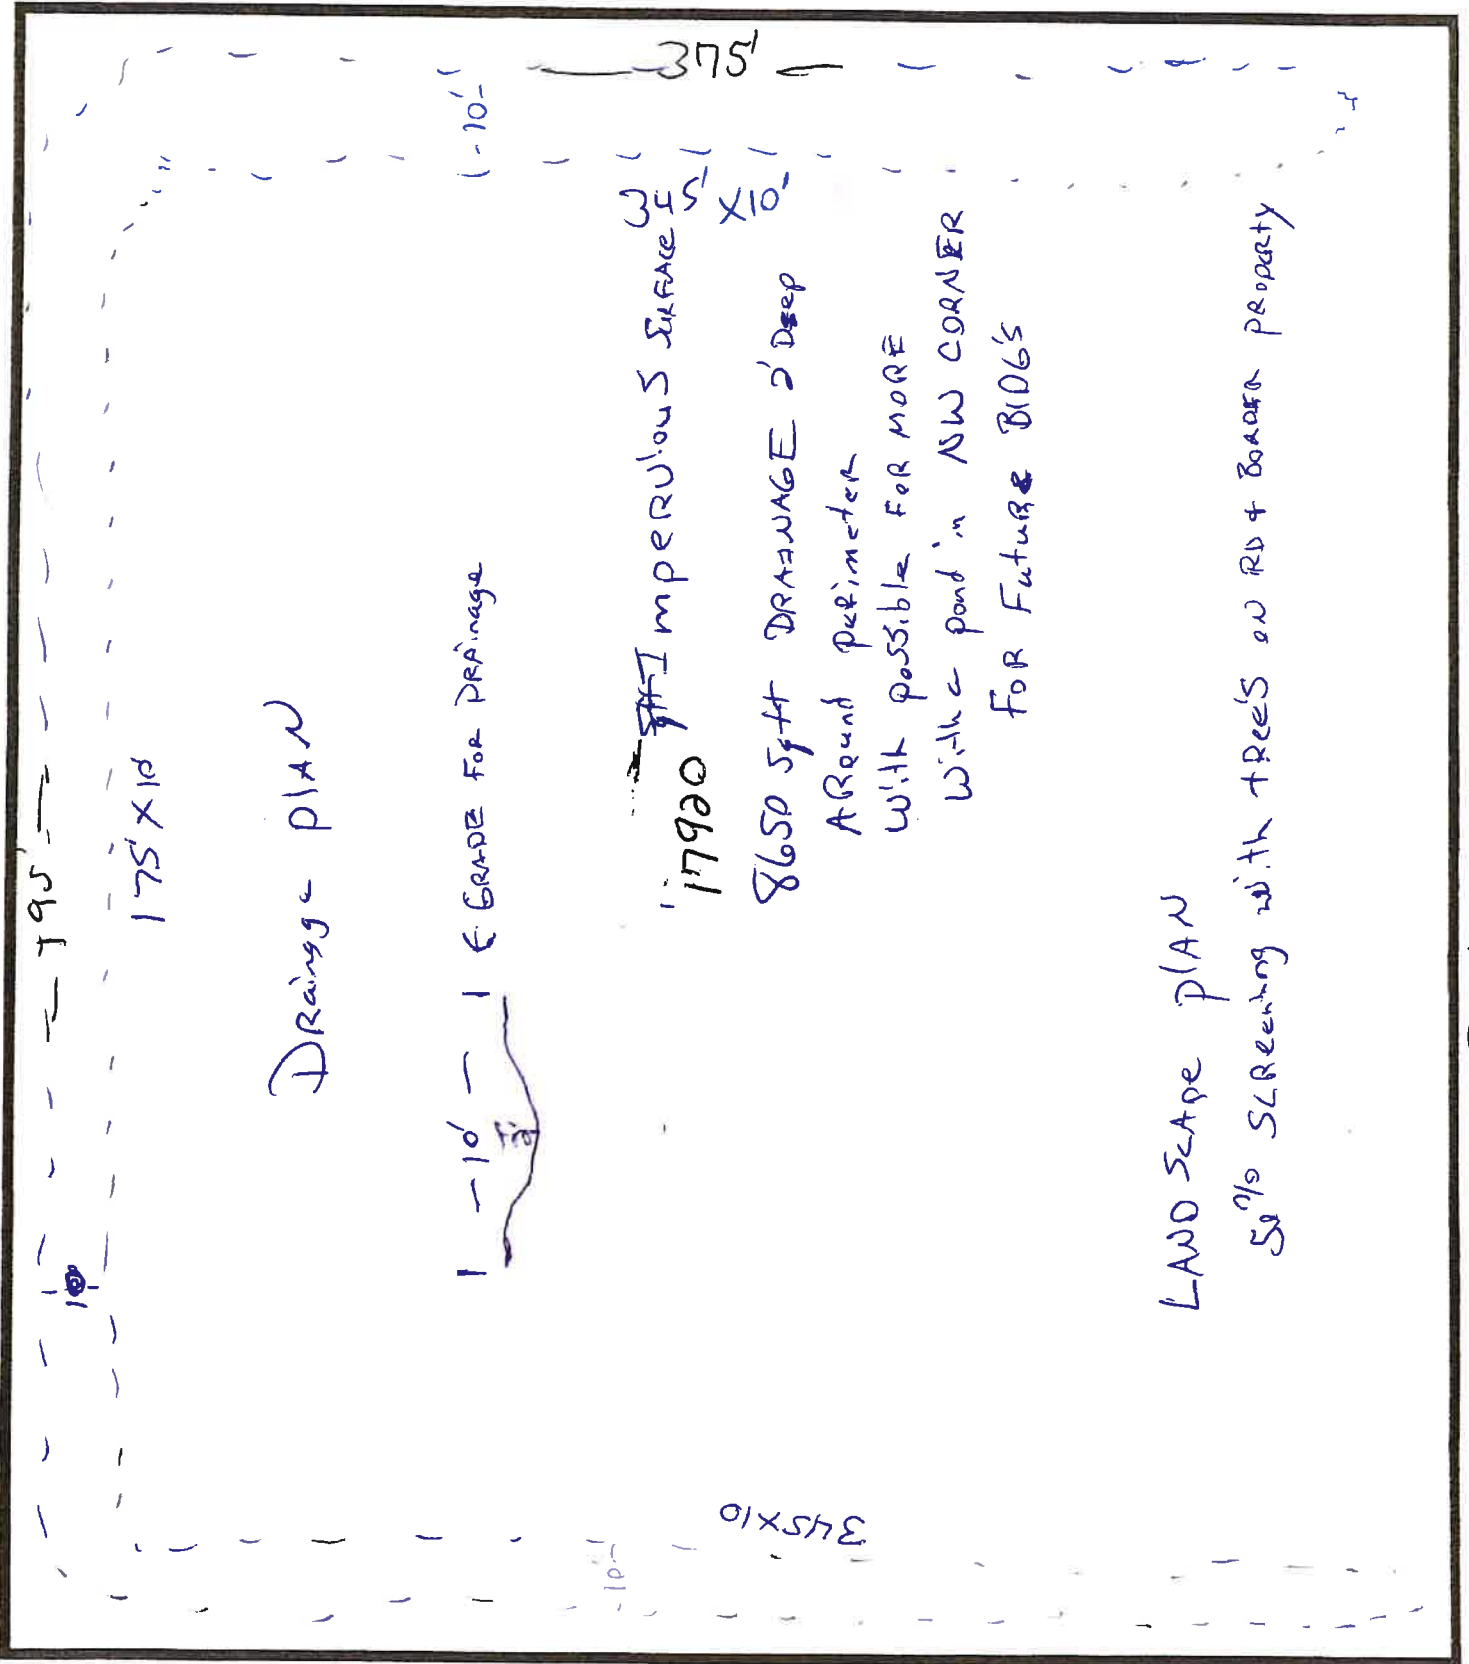 375'
-10'-
345' x10'
195'
175' x 10'
10
Drainge plAN
1 -10' - 1 ← GRADE FOR DRAinage
17920 sqft ImpeRVious SURFACE
8650 Sqft DRAINAGE 2' Deep
ARound perimeter
With possible FOR MORE
With a pond in NW CORNER
FOR Future BlDG'S
LAND SCApe plAN
50% SCReening with tRee'S ON RD & BORDER pROpeRty
345x10
-10-